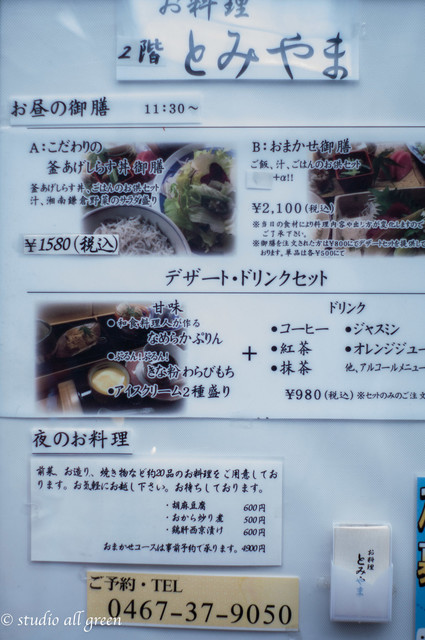 お料理
2階 とみやま
お昼の御膳 11:30~
A:こだわりの
釜あげしらす丼御膳
釜あげしらす丼、ごはんのお供セット
汁、湘南鎌倉野菜のサラダ盛り
¥1580(税込)
B:おまかせ御膳
ご飯、汁、ごはんのお供セット
+α!!
¥2,100(税込)
※当日の食材により料理内容や出し方が変化しますので
ご了承下さい。
※御膳を注文された方は¥800にてデザートセットを
おります。単品は各¥500にて
デザート・ドリンクセット
甘味
●和食料理人が作る
なめらかぷりん
●ぷるん!ぷるん!
きな粉わらびもち
●アイスクリーム2種盛り
+
ドリンク
●コーヒー ●ジャスミン
●紅茶 ●オレンジジュー
●抹茶 他、アルコールメニュー
¥980(税込)※セットのみのご注文
夜のお料理
前菜、お造り、焼き物など約20品のお料理をご用意してお
ります。お気軽にお越し下さい。お待ちしております。
・胡麻豆腐 600円
・おから炒り煮 500円
・鶏肝西京漬け 600円
おまかせコースは事前予約で承ります。4900円
ご予約・TEL
0467-37-9050
お料理
とみやま
© studio all green